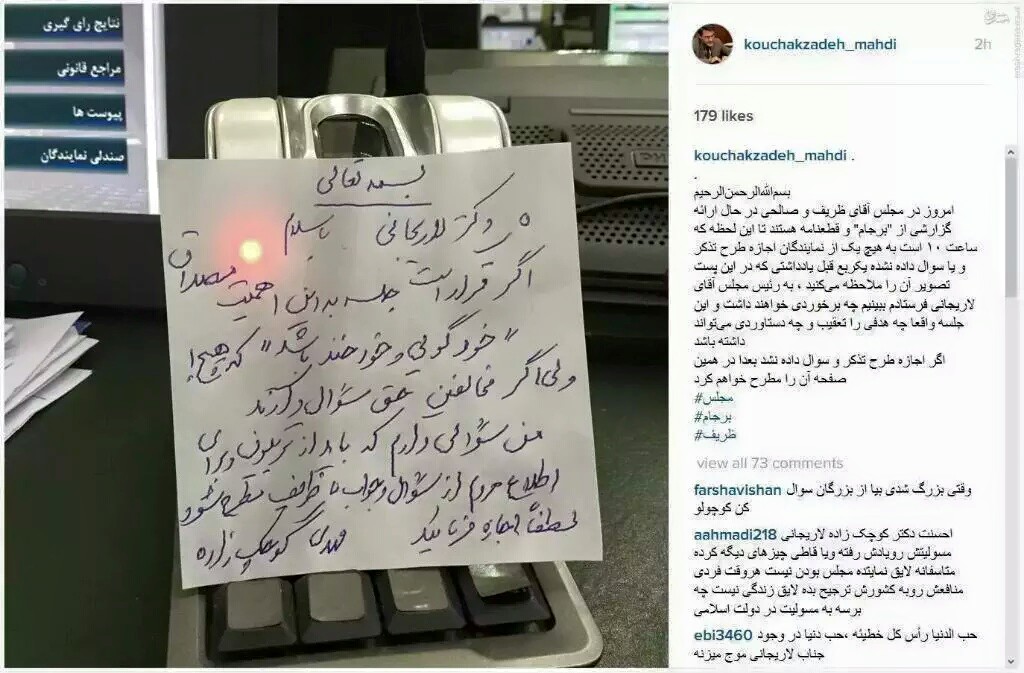 نتایج رای گیری
مراجع قانونی
پیوست ها
صندلی نمایندگان
بسمه تعالی
دکتر لاریجانی باسلام
اگر قرار است جلسه به این اهمیت مصداق
"خود گویی و خود خند باشد" که هیچ!
ولی اگر مخالفین حق سؤال دارند
من سؤالی دارم که باید از تریبون و برای
اطلاع مردم از سؤال و جواب مطرح شود
لطفاً اجازه فرمائید مهدی کوچک زاده
kouchakzadeh_mahdi
2h
179 likes
kouchakzadeh_mahdi .
.
بسم‌الله‌الرحمن‌الرحیم
امروز در مجلس آقای ظریف و صالحی در حال ارائه
گزارشی از "برجام" و قطعنامه هستند تا این لحظه که
ساعت ۱۰ است به هیچ یک از نمایندگان اجازه طرح تذکر
و یا سوال داده نشده یکربع قبل یادداشتی که در این پست
تصویر آن را ملاحظه می‌کنید ، به رئیس مجلس آقای
لاریجانی فرستادم ببینیم چه برخوردی خواهند داشت و این
جلسه واقعا چه هدفی را تعقیب و چه دستاوردی می‌تواند
داشته باشد
اگر اجازه طرح تذکر و سوال داده نشد بعدا در همین
صفحه آن را مطرح خواهم کرد
#مجلس
#برجام
#ظریف
view all 73 comments
farshavishan وقتی بزرگ شدی بیا از بزرگان سوال
کن کوچولو
aahmadi218 احسنت دکتر کوچک زاده لاریجانی
مسولیتش رویادش رفته ویا قاطی چیزهای دیگه کرده
متاسفانه لایق نماینده مجلس بودن نیست هروقت فردی
منافعش روبه کشورش ترجیح بده لایق زندگی نیست چه
برسه به مسولیت در دولت اسلامی
ebi3460 حب الدنیا رأس کل خطیئه ،حب دنیا در وجود
جناب لاریجانی موج میزنه